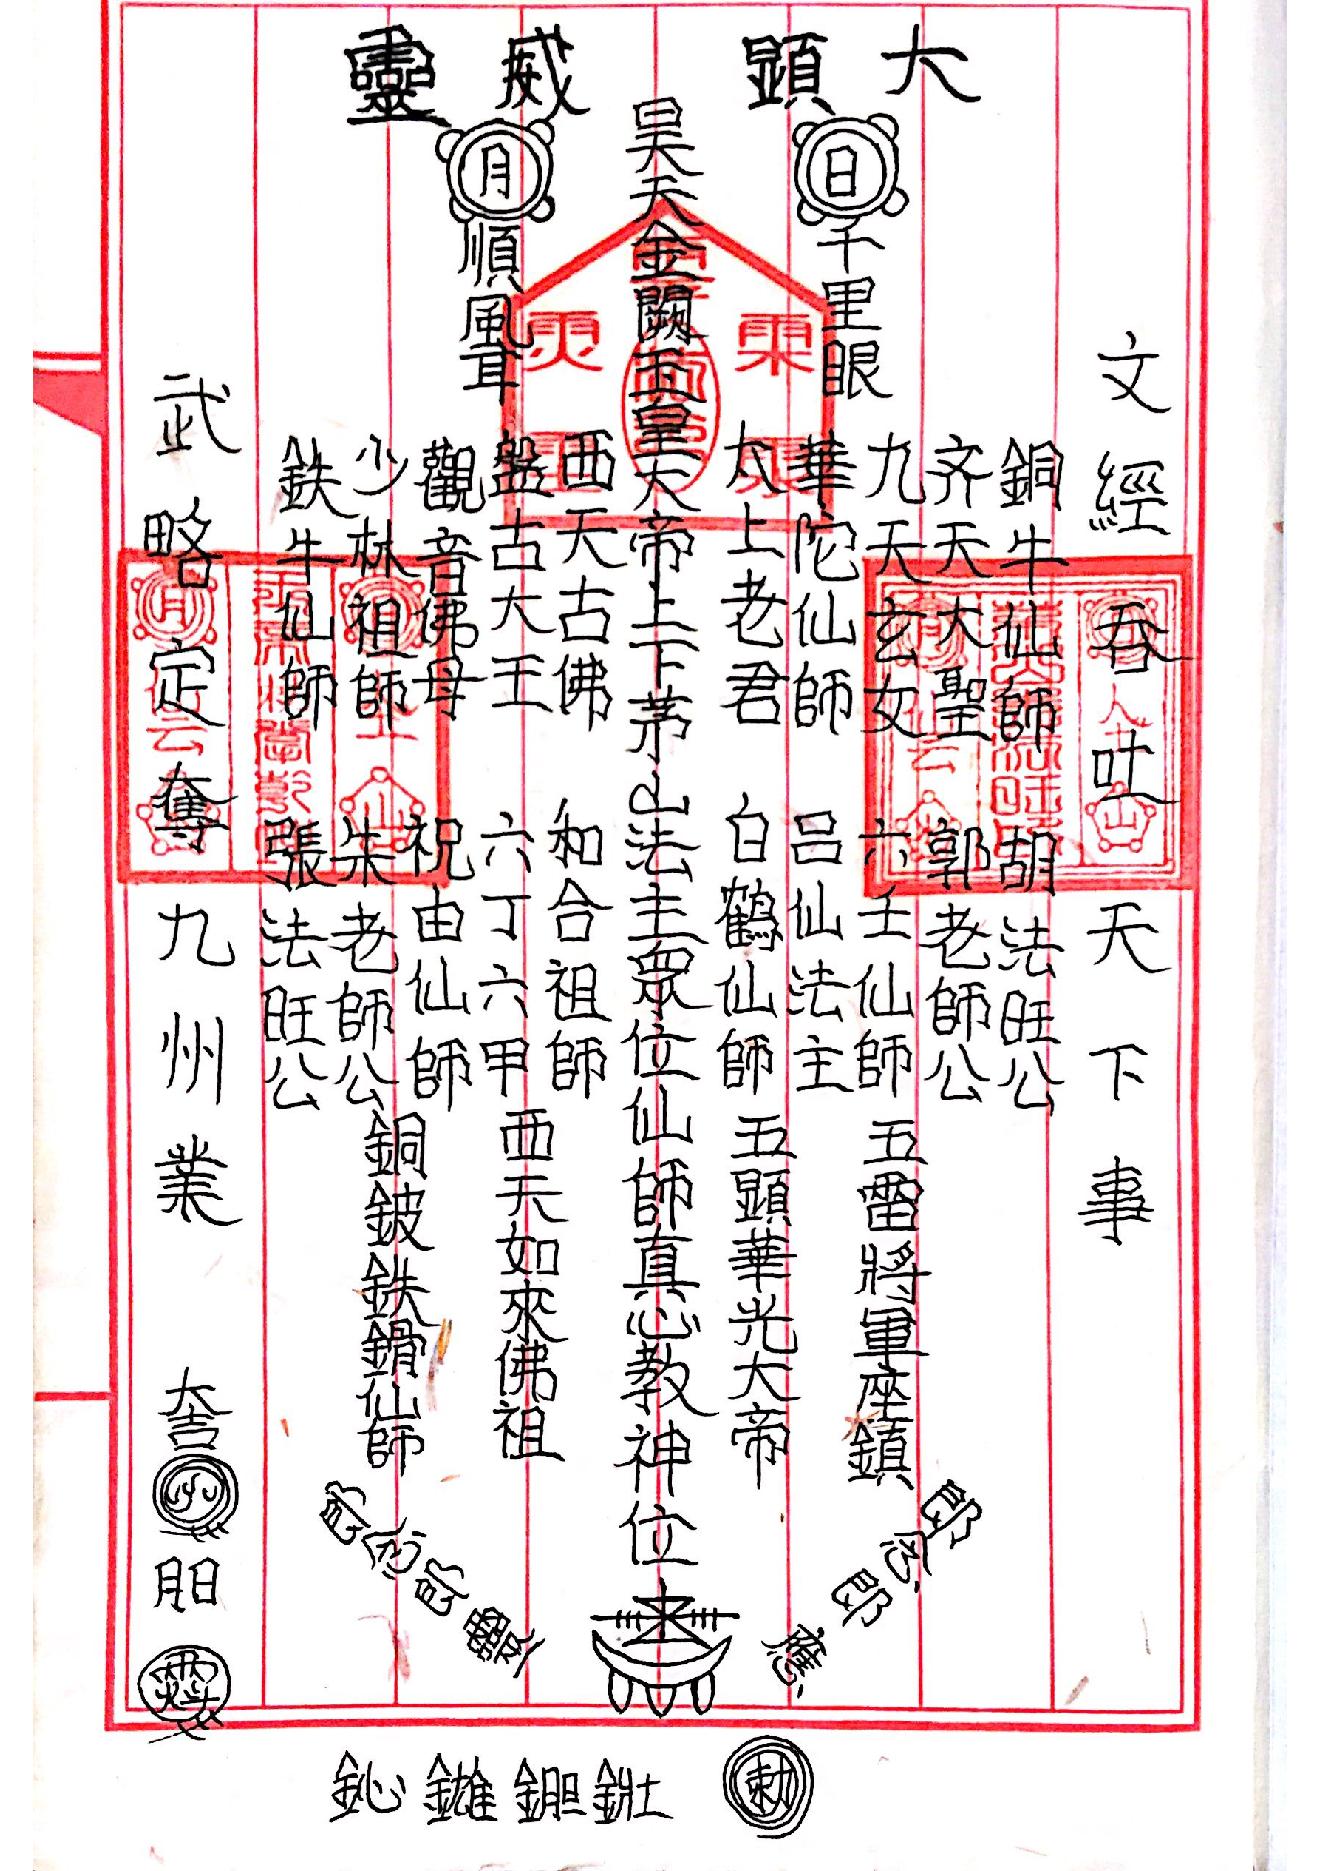 大顯威靈
日
月
文經吞吐天下事
千里眼
銅牛仙師 胡法旺公
齐天大聖 郭老師公
九天玄女 六壬仙師
五雷將軍座鎮
華陀仙師 呂仙法主
太上老君 白鶴仙師
五顯華光大帝
昊天金闕玉皇大帝上下茅山法主眾位仙師真心教神位
順風耳
西天古佛 和合祖師
盤古大王 六丁六甲
西天如來佛祖
觀音佛母 祝由仙師
少林祖師 朱老師公
銅鈸鉄鎖仙師
鉄牛仙師 張法旺公
武略定奪九州業
應
靈
勅